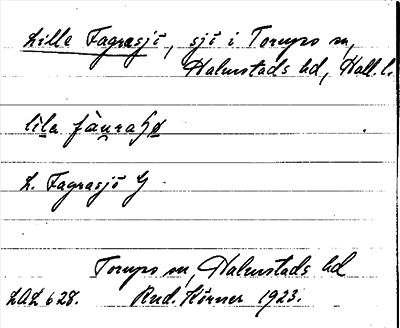 Lille Fagrasjö, sjö i Torups sn,
Halmstads hd, Hall. l.
L. Fagrasjö G
Torups sn, Halmstads hd
LAL 628. Rud. Körner 1923.